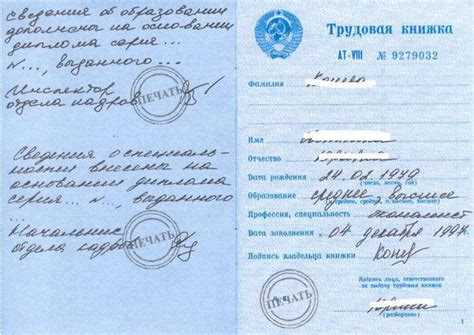 Сведения об образовании
дополнены на основании
диплома серия...
№..., выданного...
Инспектор
отдела кадров
ПЕЧАТЬ
Сведения о специаль-
ности внесены на
основании диплома
серия... №..., выданного
...
Начальник
отдела кадров
ПЕЧАТЬ
Трудовая книжка
АТ-VIII № 9279032
Фамилия
Имя
Отчество
Дата рождения 24.02.1949
(число, месяц, год)
Образование среднее, высшее
Профессия, специальность экономист
Дата заполнения 04 декабря 199
Подпись владельца книжки
Подпись лица, ответственного
за выдачу трудовых книжек
(разборчиво)
ПЕЧАТЬ
1